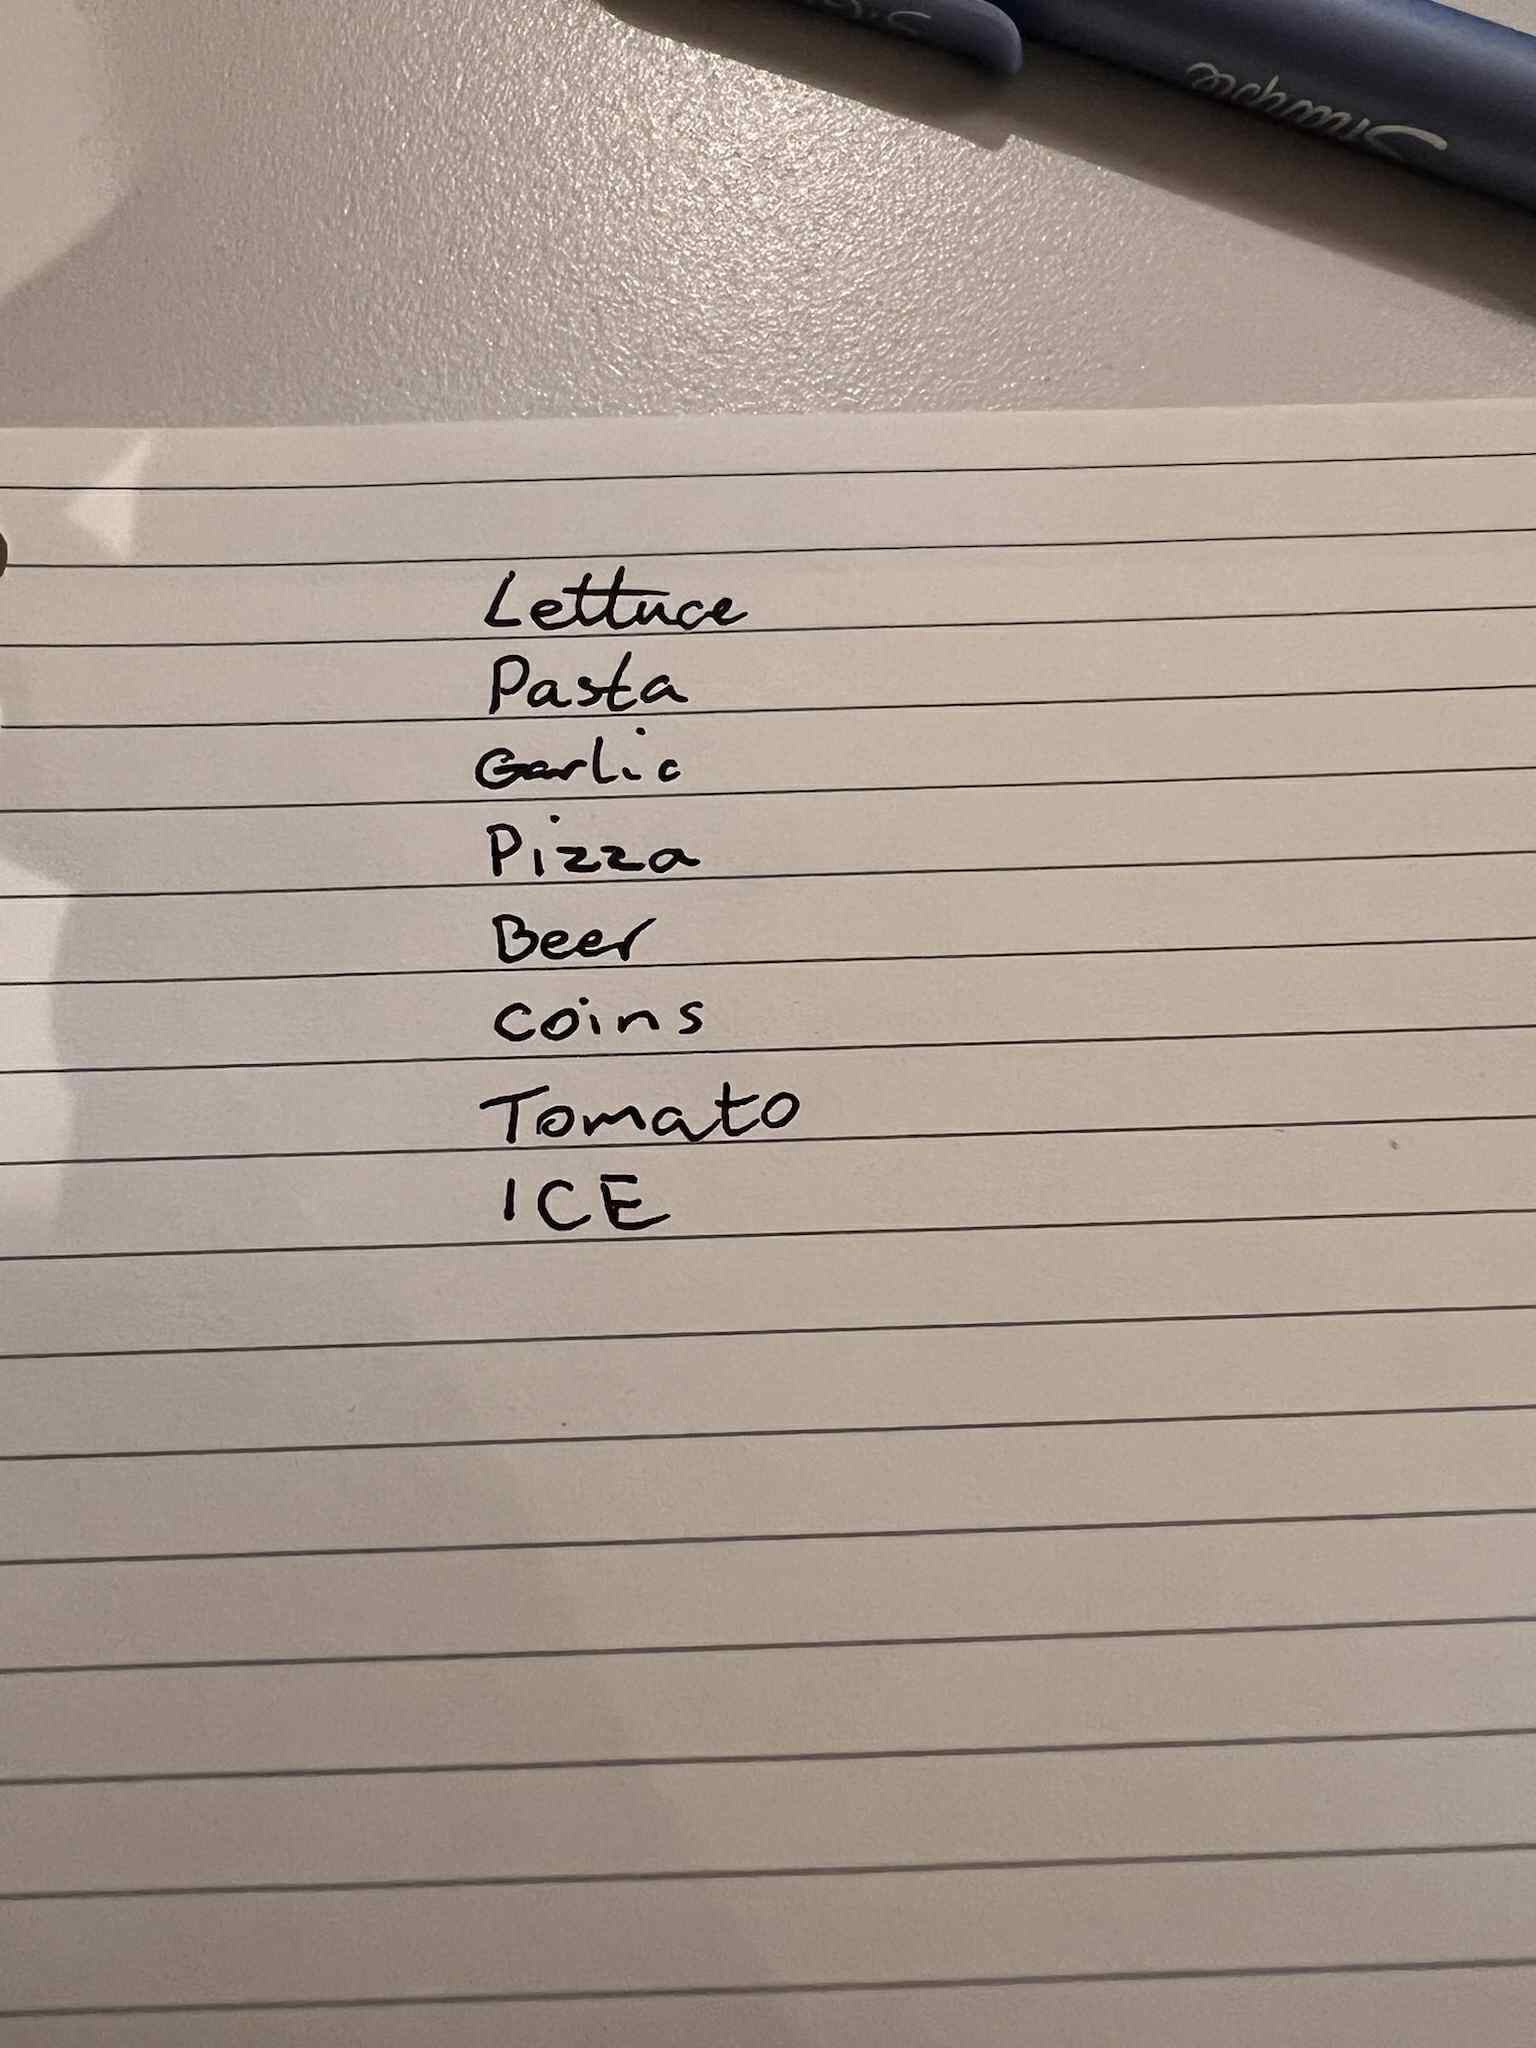 Sharpie
Lettuce
Pasta
Garlic
Pizza
Beer
coins
Tomato
ICE